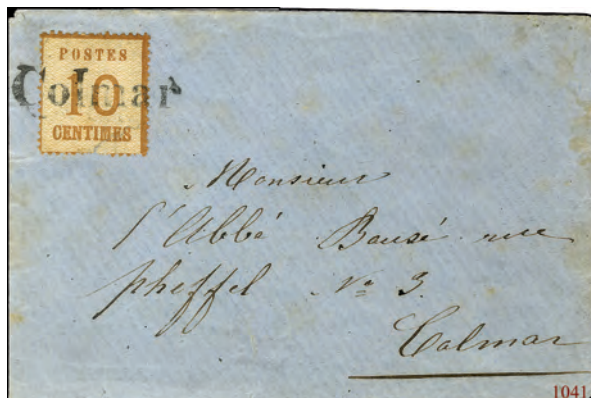 POSTES
10
CENTIMES
Colmar
Monsieur
l'Abbé Bausé rue
pheffel No 3
Colmar
1041.